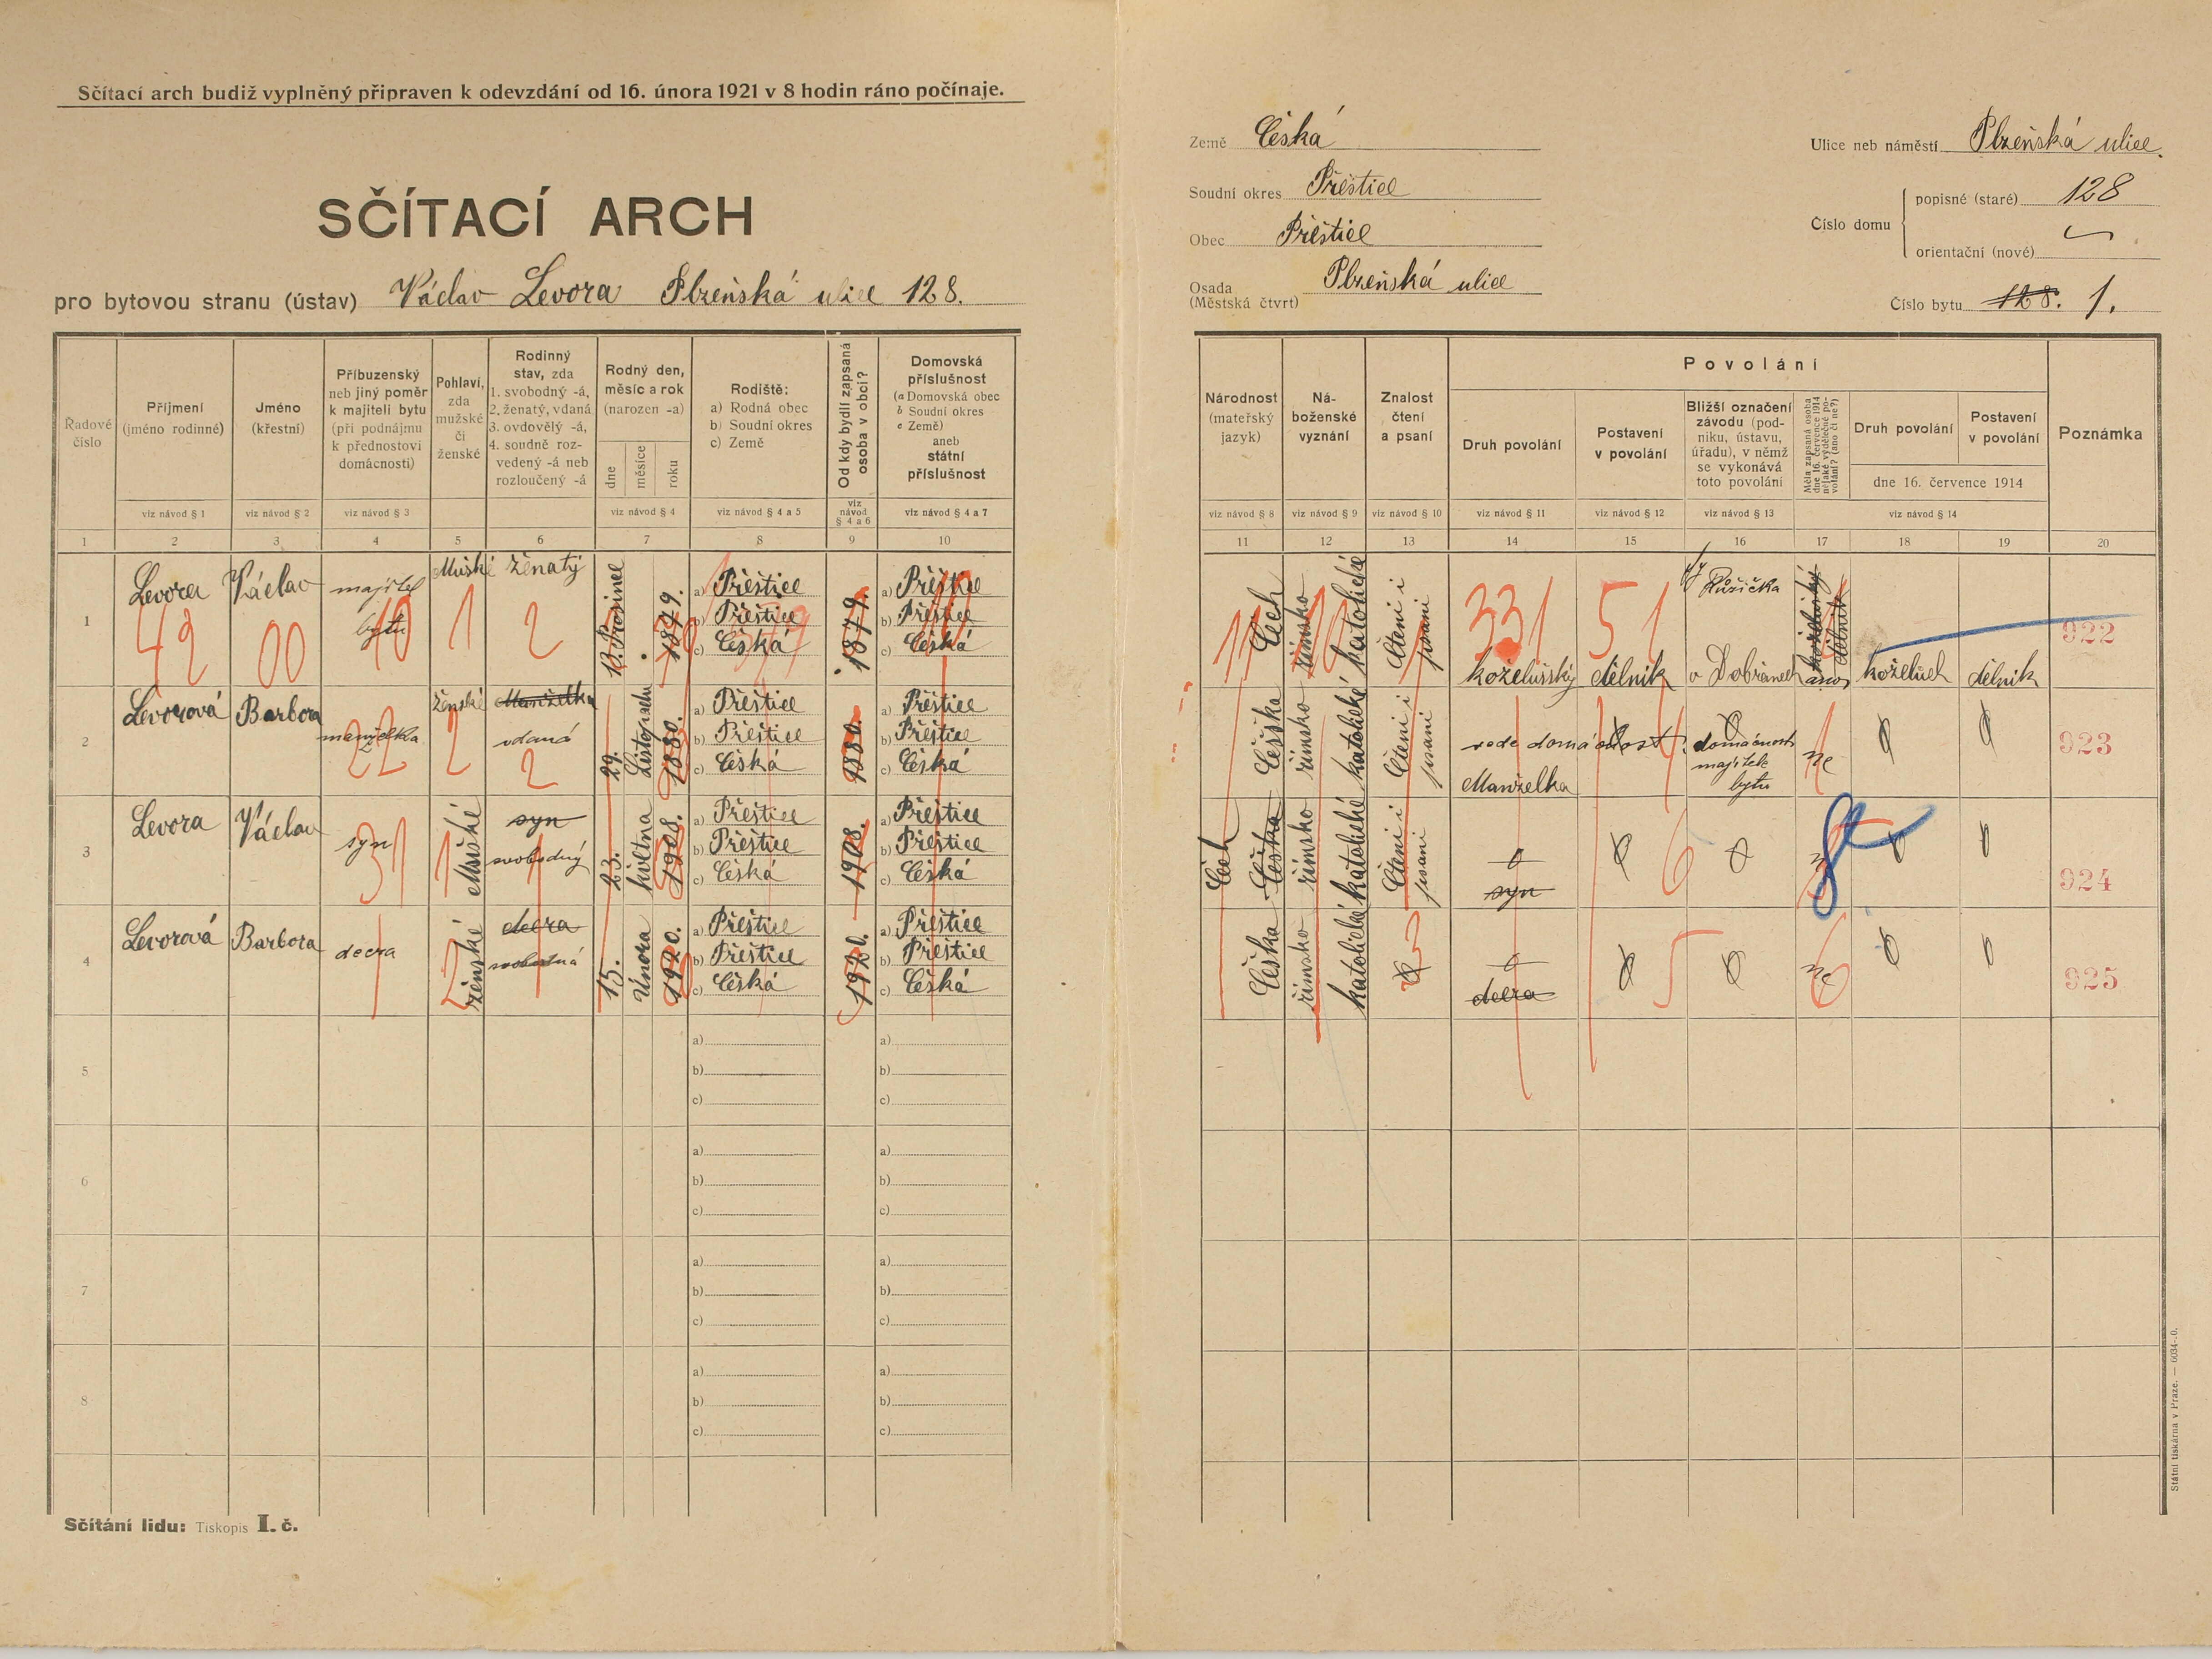 Sčítací arch budiž vyplněný připraven k odevzdání od 16. února 1921 v 8 hodin ráno počínaje.
SČÍTACÍ ARCH
pro bytovou stranu (ústav) Václav Levora Plzeňská ulice 128.
Země Česká
Soudní okres Přeštice
Obec Přeštice
Osada
(Městská čtvrt) Plzeňská ulice
Ulice neb náměstí Plzeňská ulice.
Číslo domu
popisné (staré) 128
orientační (nové)
Číslo bytu 128. 1.
Řadové
číslo
Příjmení
(jméno rodinné)
viz návod § 1
Jméno
(křestní)
viz návod § 2
Příbuzenský
neb jiný poměr
k majiteli bytu
(při podnájmu
k přednostovi
domácnosti)
viz návod § 3
Pohlaví,
zda
mužské
či
ženské
Rodinný
stav, zda
1. svobodný -á,
2. ženatý, vdaná
3. ovdovělý -á,
4. soudně roz-
vedený -á neb
rozloučený -á
Rodný den,
měsíc a rok
(narozen -a)
dne
měsíce
roku
viz návod § 4
Rodiště:
a) Rodná obec
b) Soudní okres
c) Země
viz návod § 4 a 5
Od kdy bydlí zapsaná
osoba v obci?
viz
návod
§ 4 a 6
Domovská
příslušnost
(a Domovská obec
b Soudní okres
c Země)
aneb
státní
příslušnost
viz návod § 4 a 7
Národnost
(mateřský
jazyk)
viz návod § 8
Ná-
boženské
vyznání
viz návod § 9
Znalost
čtení
a psaní
viz návod § 10
Povolání
Druh povolání
viz návod § 11
Postavení
v povolání
viz návod § 12
Bližší označení
závodu (pod-
niku, ústavu,
úřadu), v němž
se vykonává
toto povolání
viz návod § 13
Měla zapsaná osoba
dne 16. července 1914
nějaké výdělečné po-
volání? (ano či ne?)
Druh povolání
Postavení
v povolání
dne 16. července 1914
viz návod § 14
Poznámka
1 2 3 4 5 6 7 8 9 10
11 12 13 14 15 16 17 18 19 20
1
Levora
Václav
majitel
bytu
Mužské
ženatý
13. Prosinel 1879.
a) Přeštice
b) Přeštice
c) Česká
1879.
a) Přeštice
b) Přeštice
c) Česká
42 00 10 1 2
Čech
římsko katolické
Čtení i
psaní
331
koželužský
51
dělník
Růžička
v Dobřanech
koželužský
dělník
ano
koželuch
dělník
922
2
Levorová
Barbora
manželka
22
ženské
2
Manželka
vdaná
2
29. Listopadu 1880.
a) Přeštice
b) Přeštice
c) Česká
1880.
a) Přeštice
b) Přeštice
c) Česká
Češka
římsko katolické
Čtení i
psaní
vede domácnost
Manželka
domácnost
majitele
bytu
ne
923
3
Levora
Václav
syn
31
Mužské
1
syn
svobodný
23. května 1908.
a) Přeštice
b) Přeštice
c) Česká
1908.
a) Přeštice
b) Přeštice
c) Česká
Čech
Češka
římsko katolické
Čtení i
psaní
syn
6
924
4
Levorová
Barbora
dcera
ženské
2
dcera
svobodná
15. Února 1920.
a) Přeštice
b) Přeštice
c) Česká
1920.
a) Přeštice
b) Přeštice
c) Česká
Češka
římsko katolické
dcera
5
ne
6
925
5
a)
b)
c)
a)
b)
c)
6
a)
b)
c)
a)
b)
c)
7
a)
b)
c)
a)
b)
c)
8
a)
b)
c)
a)
b)
c)
Sčítání lidu: Tiskopis I. č.
Státní tiskárna v Praze. — 6034-.0.